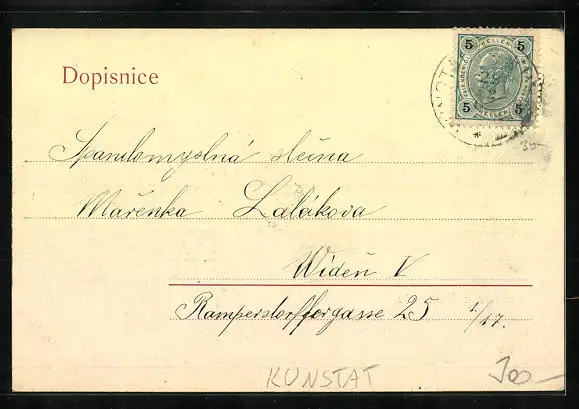 Dopisnice
5 HELLER 5
5 HELLER 5
30-
slečna
Mařenka Lalákova
Wídeń V
Ramperstorffergasse 25 1/17.
KUNSTAT 300-